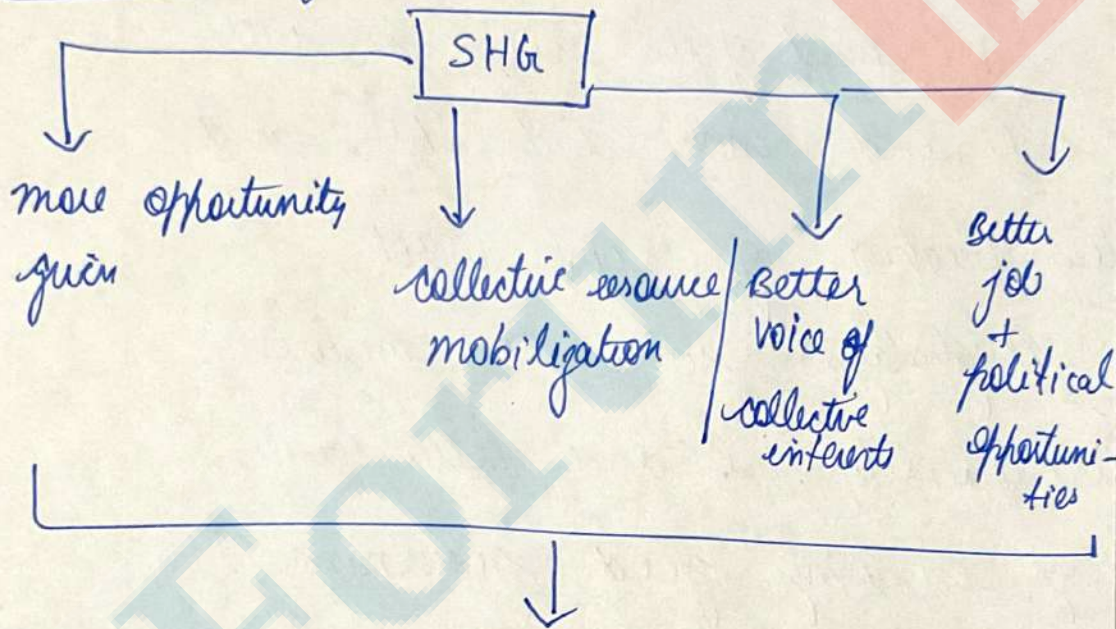 SHG
more opportunity
given
collective resource
mobilization
Better
voice of
collective
interests
Better
job
+
political
opportuni-
ties
Forum